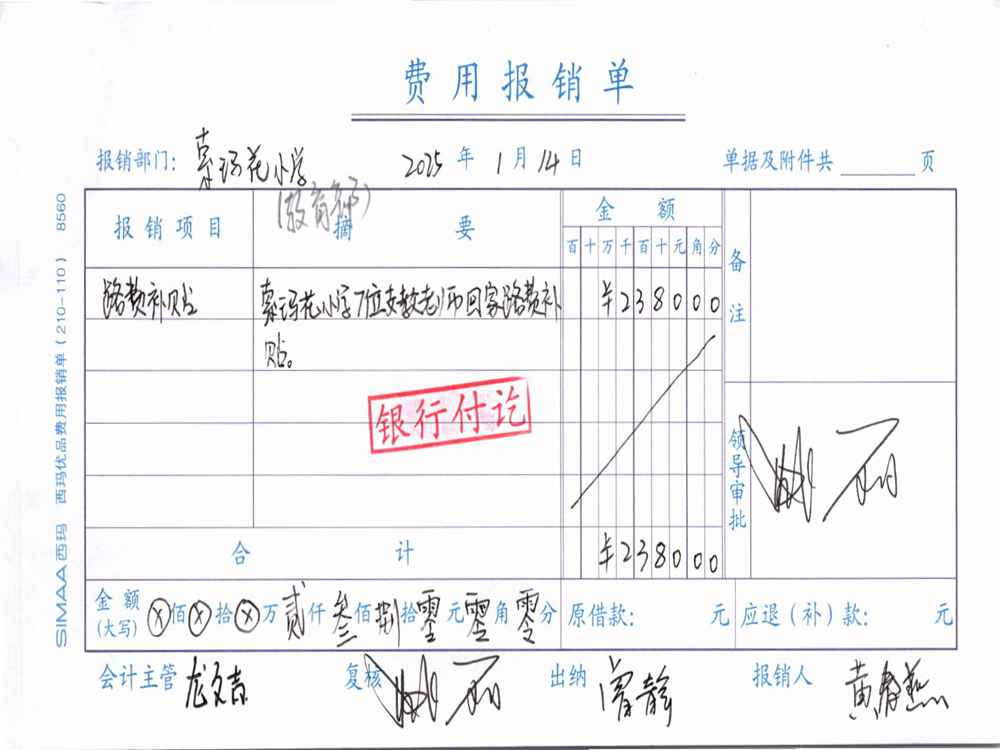 费用报销单
报销部门: 索玛花小学 2025 年 1 月 14 日 单据及附件共 页
(教育部)
报销项目 摘要 金额 备注
百十万千百十元角分
路费补贴 索玛花小学7位支教老师回家路费补 ¥238000
贴。
银行付讫
领导审批
合计 ¥238000
金额(大写) ⊗佰⊗拾⊗万贰仟叁佰捌拾零元零角零分 原借款: 元 应退(补)款: 元
会计主管 龙文吉 复核 出纳 曾静 报销人 黄春燕
SIMAA西玛 西玛优品费用报销单(210-110) 8560